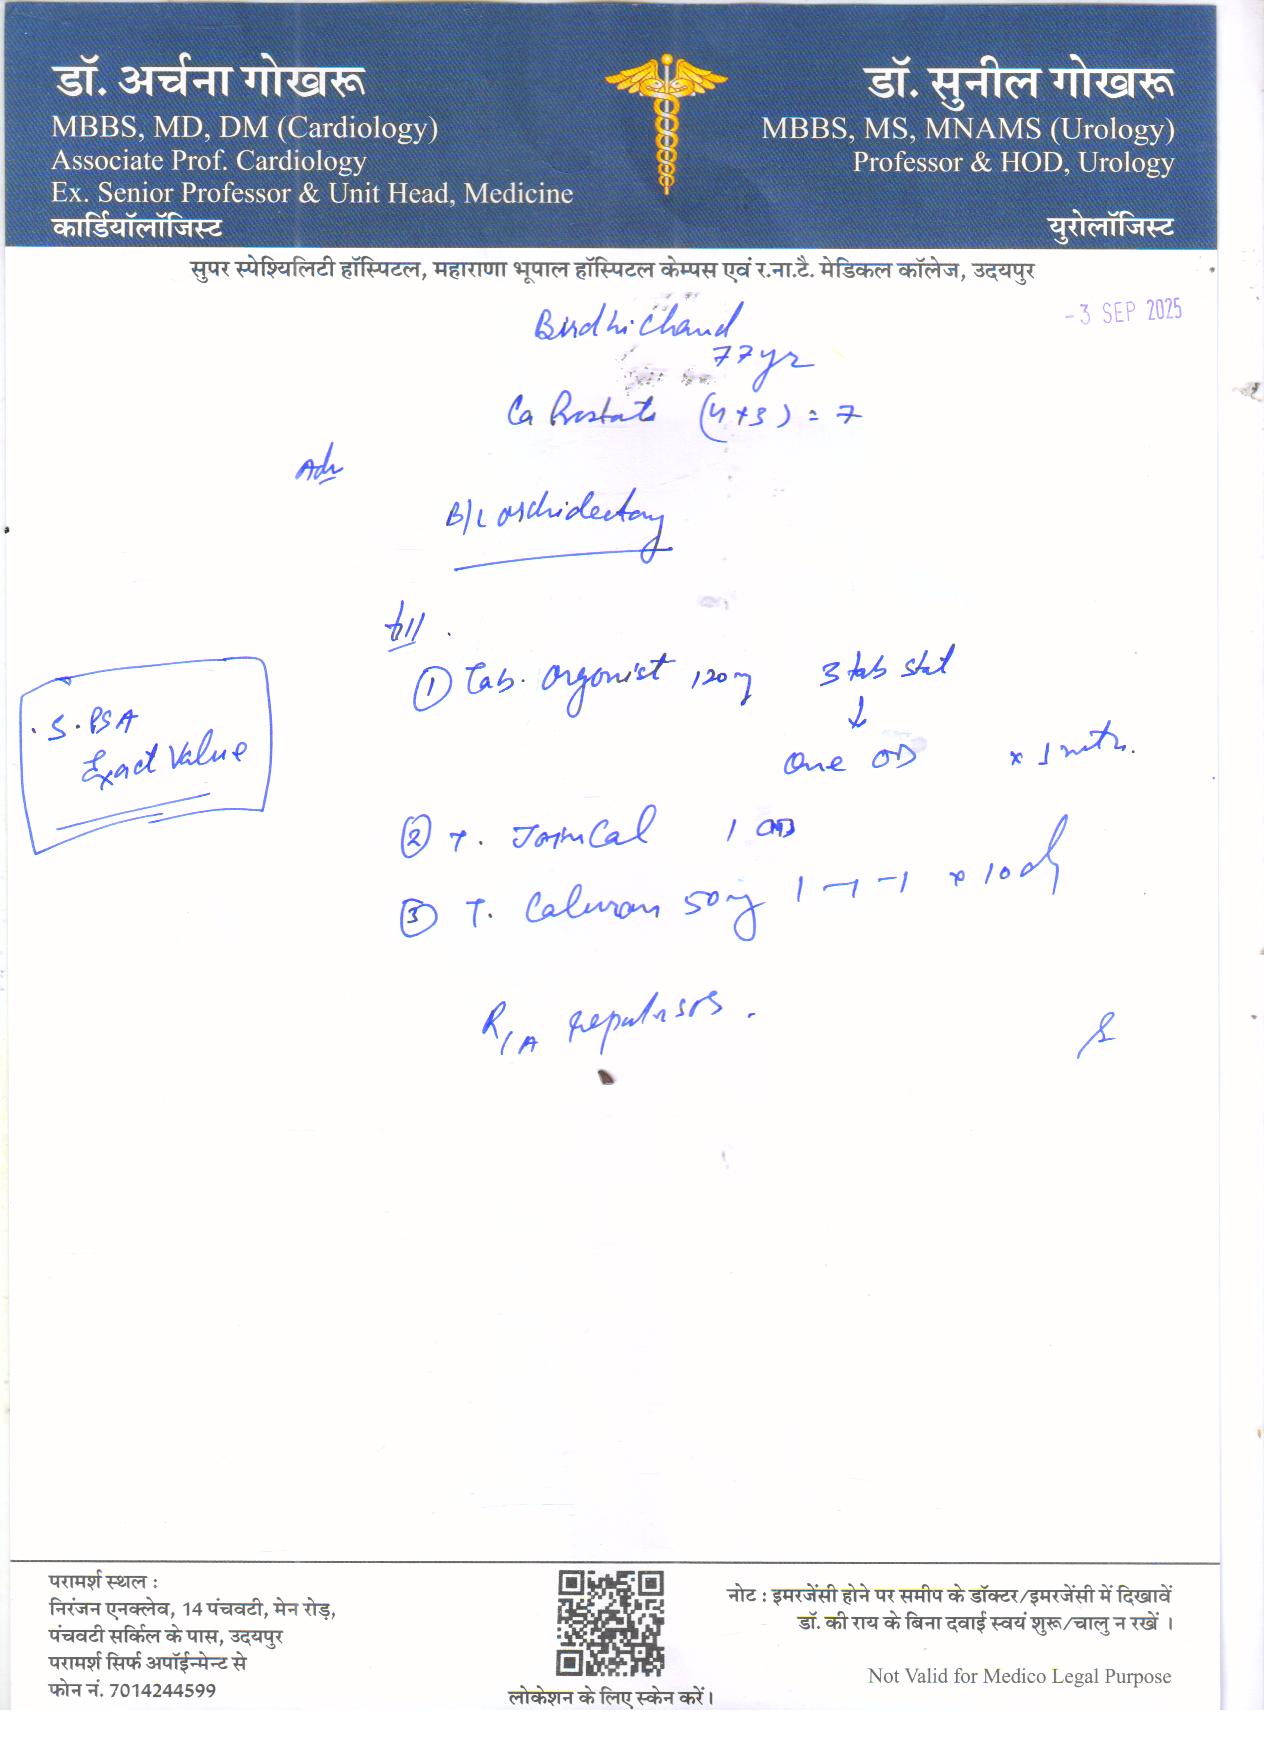 डॉ. अर्चना गोखरू
MBBS, MD, DM (Cardiology)
Associate Prof. Cardiology
Ex. Senior Professor & Unit Head, Medicine
कार्डियॉलॉजिस्ट
डॉ. सुनील गोखरू
MBBS, MS, MNAMS (Urology)
Professor & HOD, Urology
युरोलॉजिस्ट
सुपर स्पेश्यिलिटी हॉस्पिटल, महाराणा भूपाल हॉस्पिटल केम्पस एवं र.ना.टै. मेडिकल कॉलेज, उदयपुर
-3 SEP 2025
Birdhi Chand
77 yr
Ca Prostate (4+3) = 7
Adv
B/L orchidectomy
till
① Tab. Orgonist 120mg 3 tab stat
↓
One OD x 1 mth.
. S. PSA
Exact Value
② T. JoinCal 1 OD
③ T. Caluran 50mg 1-1-1 x 10 d
R/A repeat SOS.
परामर्श स्थल :
निरंजन एनक्लेव, 14 पंचवटी, मेन रोड़,
पंचवटी सर्किल के पास, उदयपुर
परामर्श सिर्फ अपॉईन्मेन्ट से
फोन नं. 7014244599
लोकेशन के लिए स्केन करें।
नोट : इमरजेंसी होने पर समीप के डॉक्टर/इमरजेंसी में दिखावें
डॉ. की राय के बिना दवाई स्वयं शुरू/चालु न रखें ।
Not Valid for Medico Legal Purpose